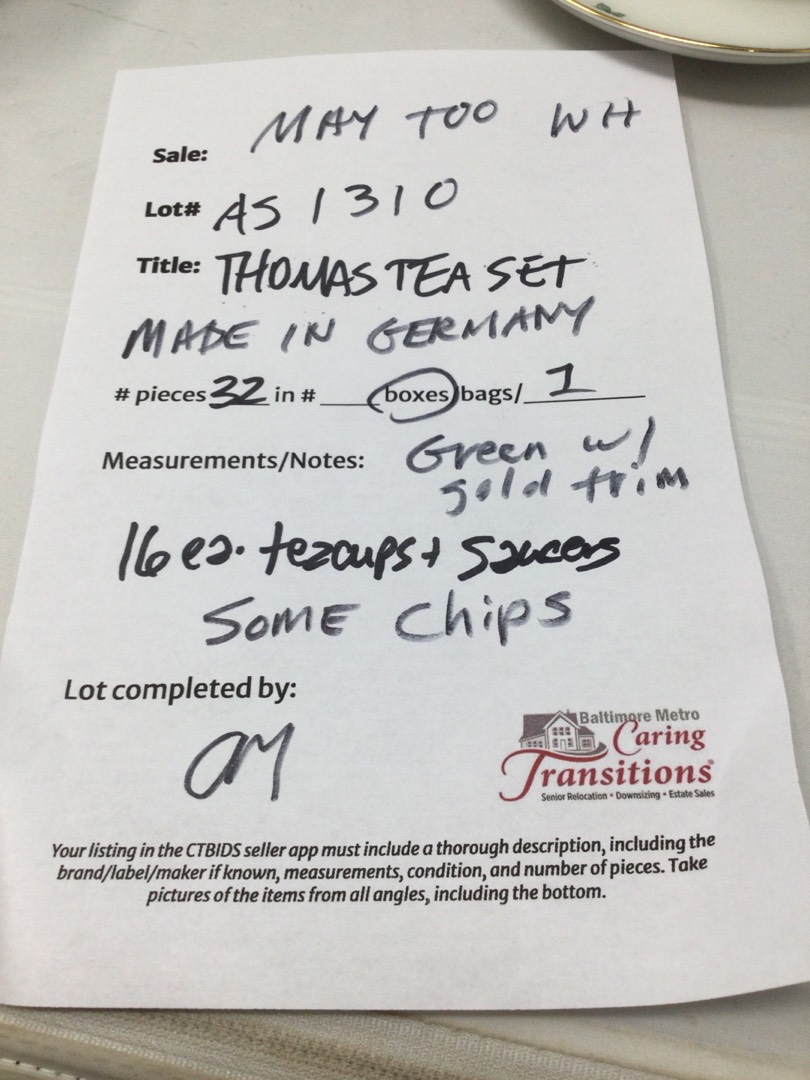 Sale: MAY TOO WH
Lot# AS 1310
Title: THOMAS TEA SET
MADE IN GERMANY
# pieces 32 in # ___ boxes/bags/ 1
Measurements/Notes: Green w/
gold trim
16 ea. teacups + saucers
SOME Chips
Lot completed by:
AM
Baltimore Metro
Caring
Transitions®
Senior Relocation • Downsizing • Estate Sales
Your listing in the CTBIDS seller app must include a thorough description, including the
brand/label/maker if known, measurements, condition, and number of pieces. Take
pictures of the items from all angles, including the bottom.